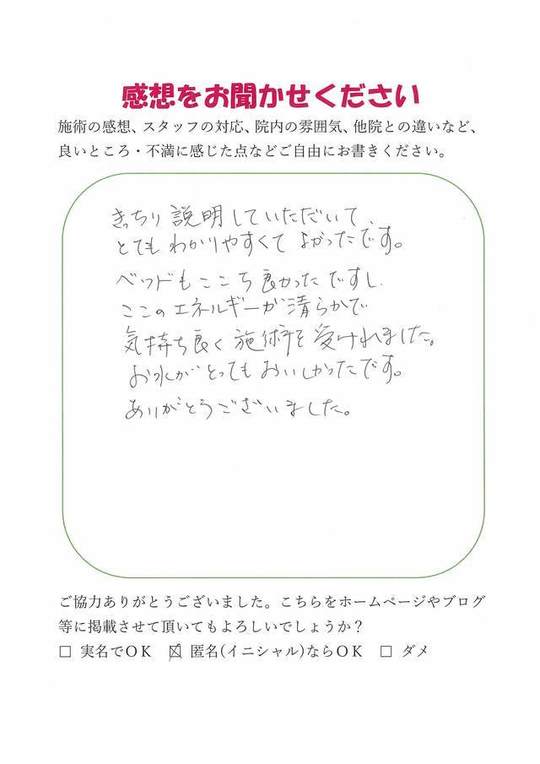 感想をお聞かせください
施術の感想、スタッフの対応、院内の雰囲気、他院との違いなど、
良いところ・不満に感じた点などご自由にお書きください。
きっちり説明していただいて、
とてもわかりやすくてよかったです。
ベッドもここち良かったですし、
ここのエネルギーが清らかで
気持ち良く施術を受けれました。
お水がとってもおいしかったです。
ありがとうございました。
ご協力ありがとうございました。こちらをホームページやブログ
等に掲載させて頂いてもよろしいでしょうか?
□ 実名でOK ☒ 匿名(イニシャル)ならOK □ ダメ